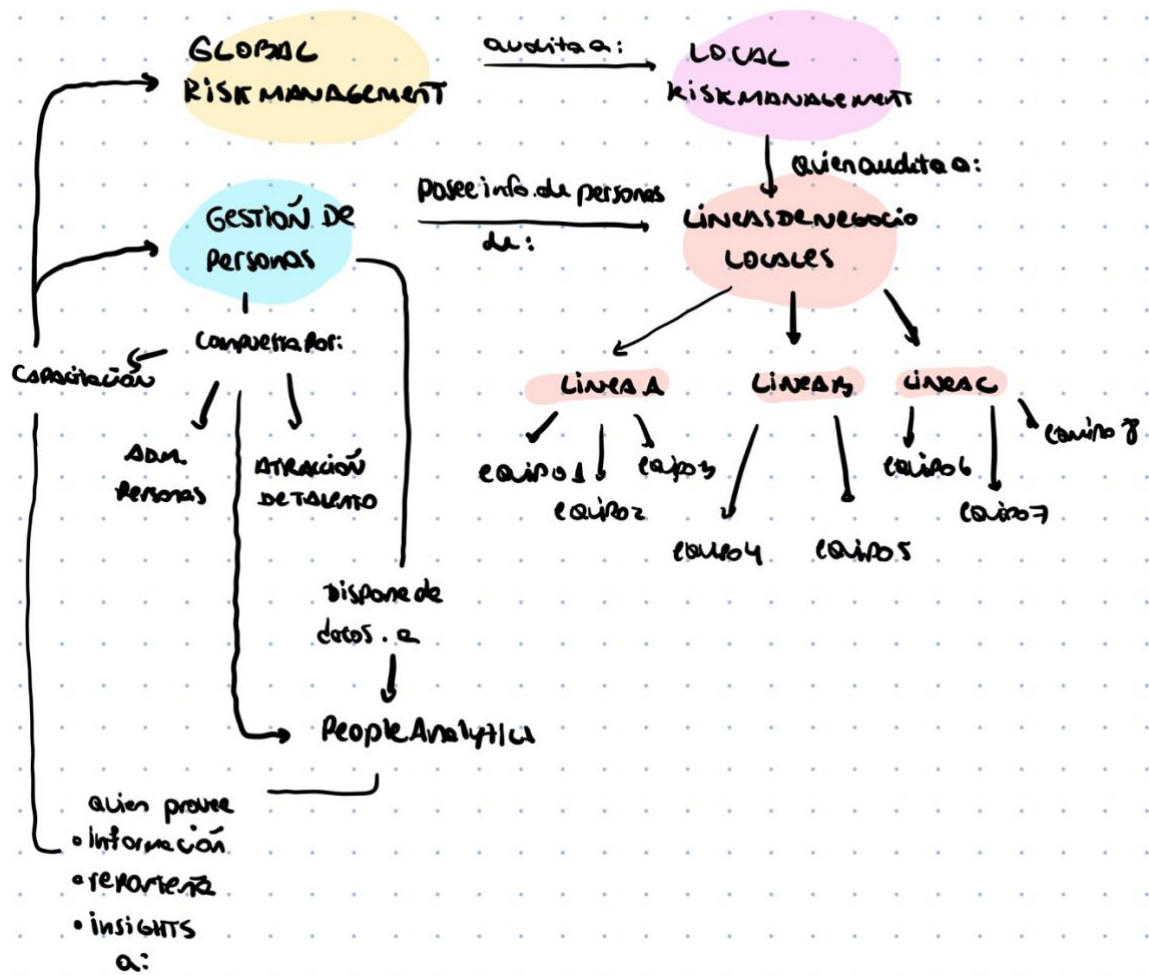 GLOBAL
RISK MANAGEMENT
audita a:
LOCAL
RISK MANAGEMENT
quien audita a:
GESTIÓN DE
Personas
Posee info. de personas
de:
LINEAS DE NEGOCIO
LOCALES
Compuesta Por:
CAPACITACIÓN
ADM.
Personas
ATRACCIÓN
DE TALENTO
LINEA A
LINEA B
LINEA C
equipo 1
equipo 2
equipo 3
equipo 4
equipo 5
equipo 6
equipo 7
equipo 8
Dispone de
datos. a
People Analytics
quien provee
• información
• reportería
• insiGHTS
a: